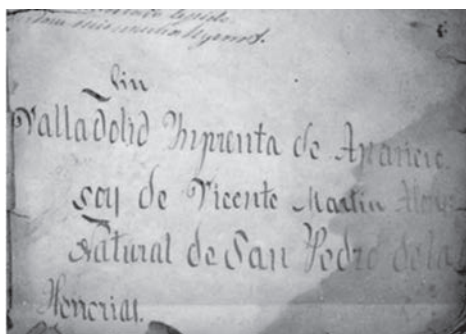 Lin
Valladolid Ymprenta de Aparicio.
soy de Vicente Martin Alonso
Natural de San Pedro de la
Herrerias.